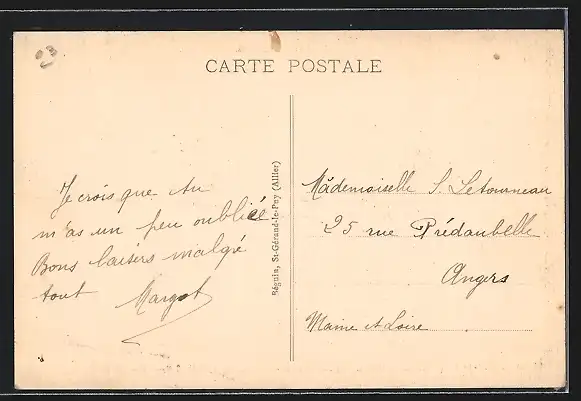 CARTE POSTALE
Je crois que tu
m'as un peu oubliée
Bons baisers malgré
tout Margot
Béguin, St-Gérand-le-Puy (Allier)
Mademoiselle S. Letourneau
25 rue Prédaubelle
Angers
Maine et Loire